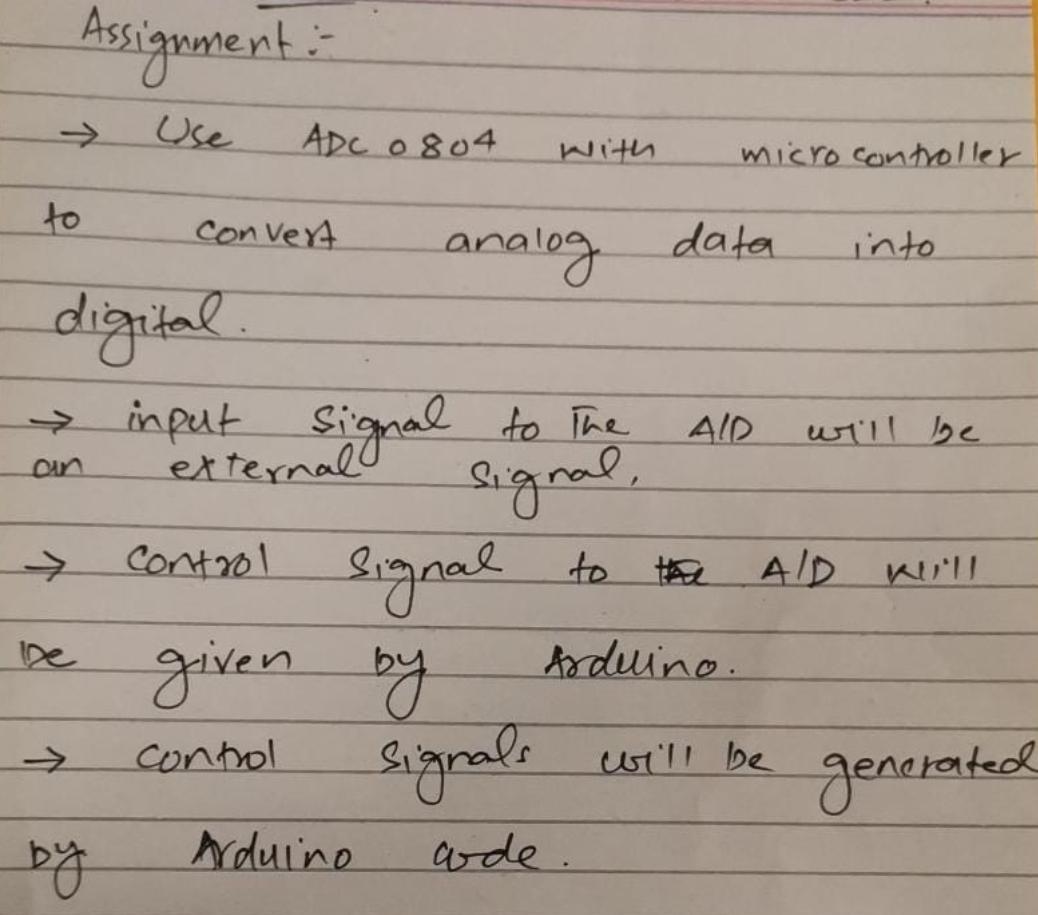 Assignment :-
→ Use ADC 0804 with microcontroller
to convert analog data into
digital.
→ input signal to The A/D will be
an external signal.
→ control signal to the A/D will
be given by Arduino.
→ control signals will be generated
by Arduino code.